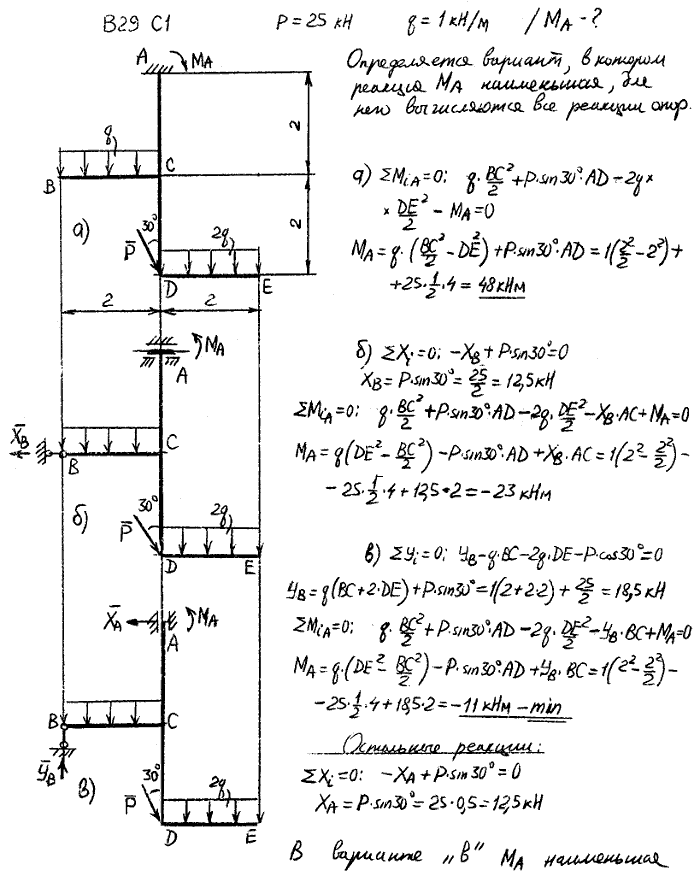 В29 С1 P = 25 кН q = 1 кН/м / M_A - ?
Определяется вариант, в котором
реакция M_A наименьшая, для
него вычисляются все реакции опор.
A M_A
q
B C
2
a)
30°
P̄
2q
2
D E
2 2
а) ΣM_iA=0; q·BC²/2+P·sin30°·AD-2q×
×DE²/2-M_A=0
M_A=q·(BC²/2-DE²)+P·sin30°·AD=1(2²/2-2²)+
+25·1/2·4=48кНм
M_A
A
X̄_B
B C
б)
30°
P̄
2q
D E
б) ΣX_i=0; -X_B+P·sin30°=0
X_B=P·sin30°=25/2=12,5кН
ΣM_iA=0; q·BC²/2+P·sin30°·AD-2q·DE²/2-X_B·AC+M_A=0
M_A=q(DE²-BC²/2)-P·sin30°·AD+X_B·AC=1(2²-2²/2)-
-25·1/2·4+12,5·2=-23кНм
X̄_A M_A
A
B C
Ȳ_B
в)
30°
P̄
2q
D E
в) ΣY_i=0; Y_B-q·BC-2q·DE-P·cos30°=0
Y_B=q(BC+2·DE)+P·sin30°=1(2+2·2)+25/2=18,5кН
ΣM_iA=0; q·BC²/2+P·sin30°·AD-2q·DE²/2-Y_B·BC+M_A=0
M_A=q·(DE²-BC²/2)-P·sin30°·AD+Y_B·BC=1(2²-2²/2)-
-25·1/2·4+18,5·2=-11кНм-min
Остальные реакции:
ΣX_i=0; -X_A+P·sin30°=0
X_A=P·sin30°=25·0,5=12,5кН
В варианте „в" M_A наименьшая